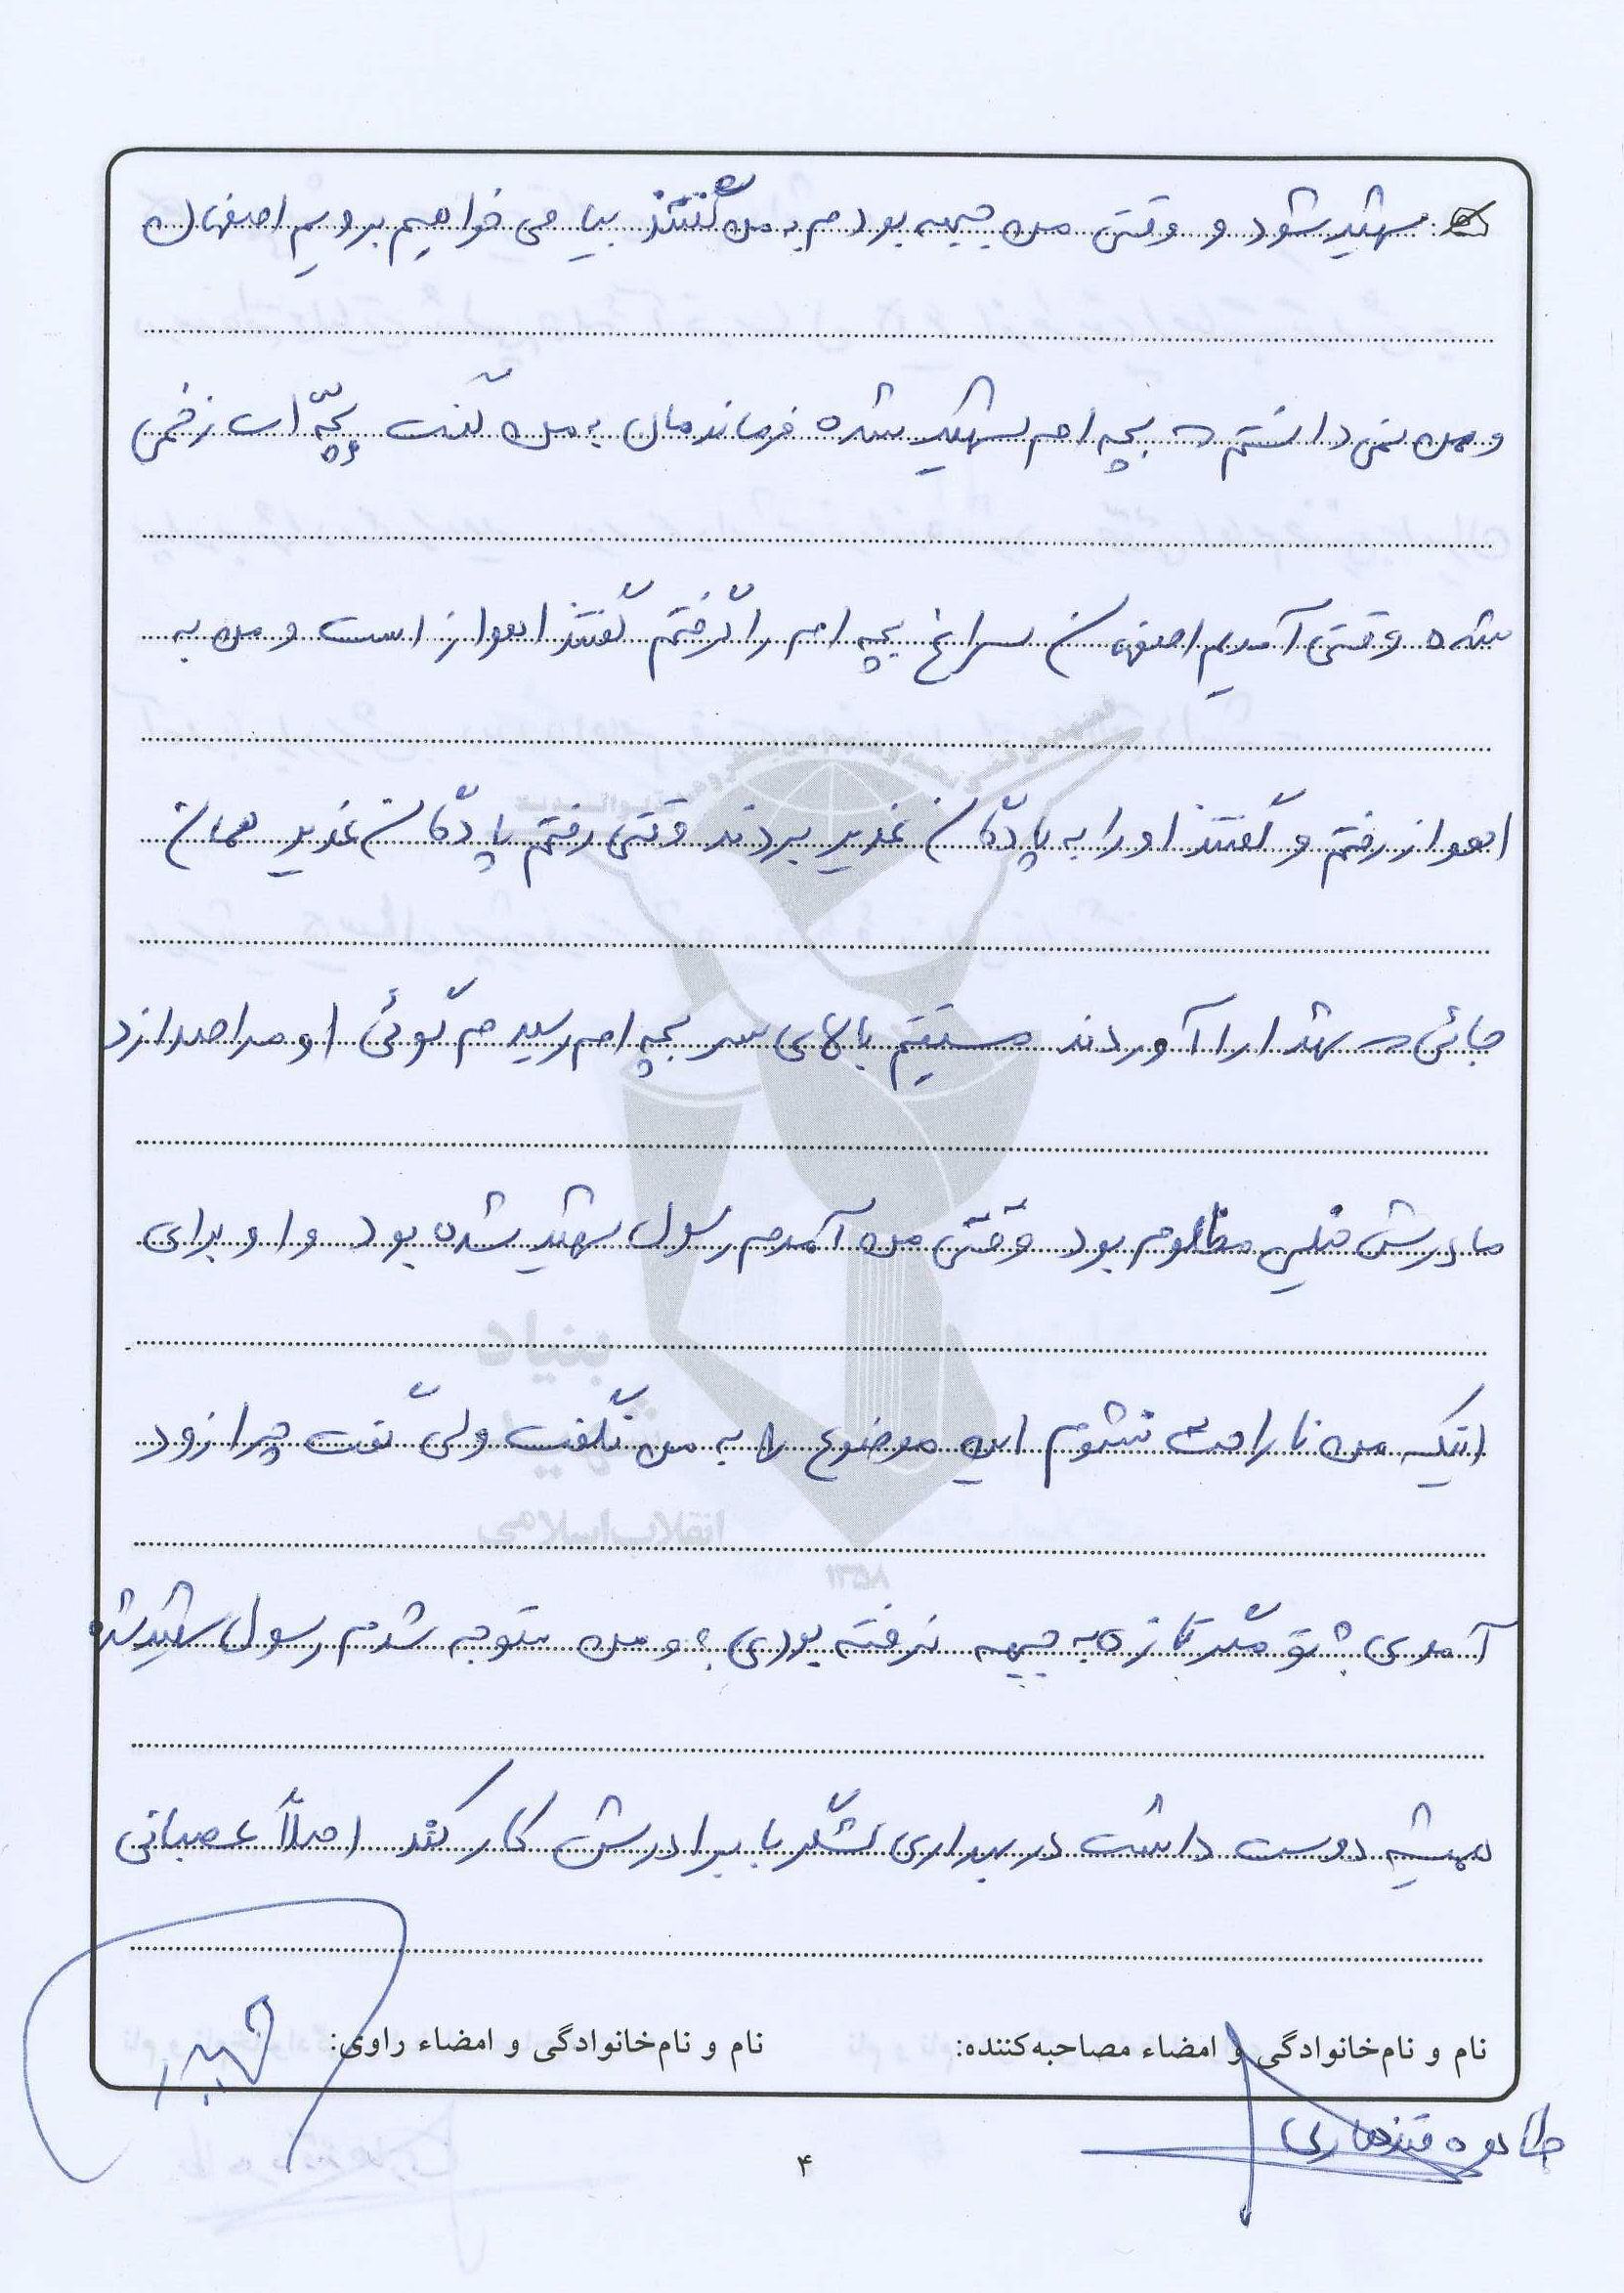 شهید شود و وقتی من جبهه بودم به من گفتند بیا می خواهیم برویم اصفهان
و من نمی دانستم که بچه ام شهید شده فرماندمان به من گفت بچّه ات زخمی
شده وقتی آمدیم اصفهان سراغ بچه ام را گرفتم گفتند اهواز است و من به
اهواز رفتم و گفتند او را به پادگان غدیر بردند وقتی رفتم پادگان غدیر همان
جائی که شهدا را آوردند مستقیم بالای سر بچه ام رسیدم گوئی او مرا صدا زد
مادرش خیلی مظلوم بود وقتی من آمدم رسول شهید شده بود و او برای
اینکه من ناراحت نشوم این موضوع را به من نگفت ولی گفت چرا زود
آمدی؟ تو مگر تازه به جبهه نرفته بودی؟ و من متوجه شدم رسول شهید شده
همیشه دوست داشت در بهداری لشگر با برادرش کار کند اصلاً عصبانی
نام و نام‌خانوادگی و امضاء مصاحبه‌کننده:
نام و نام‌خانوادگی و امضاء راوی:
طاهره قندهاری
۴
بنیاد
شهید
انقلاب اسلامی
۱۳۵۸